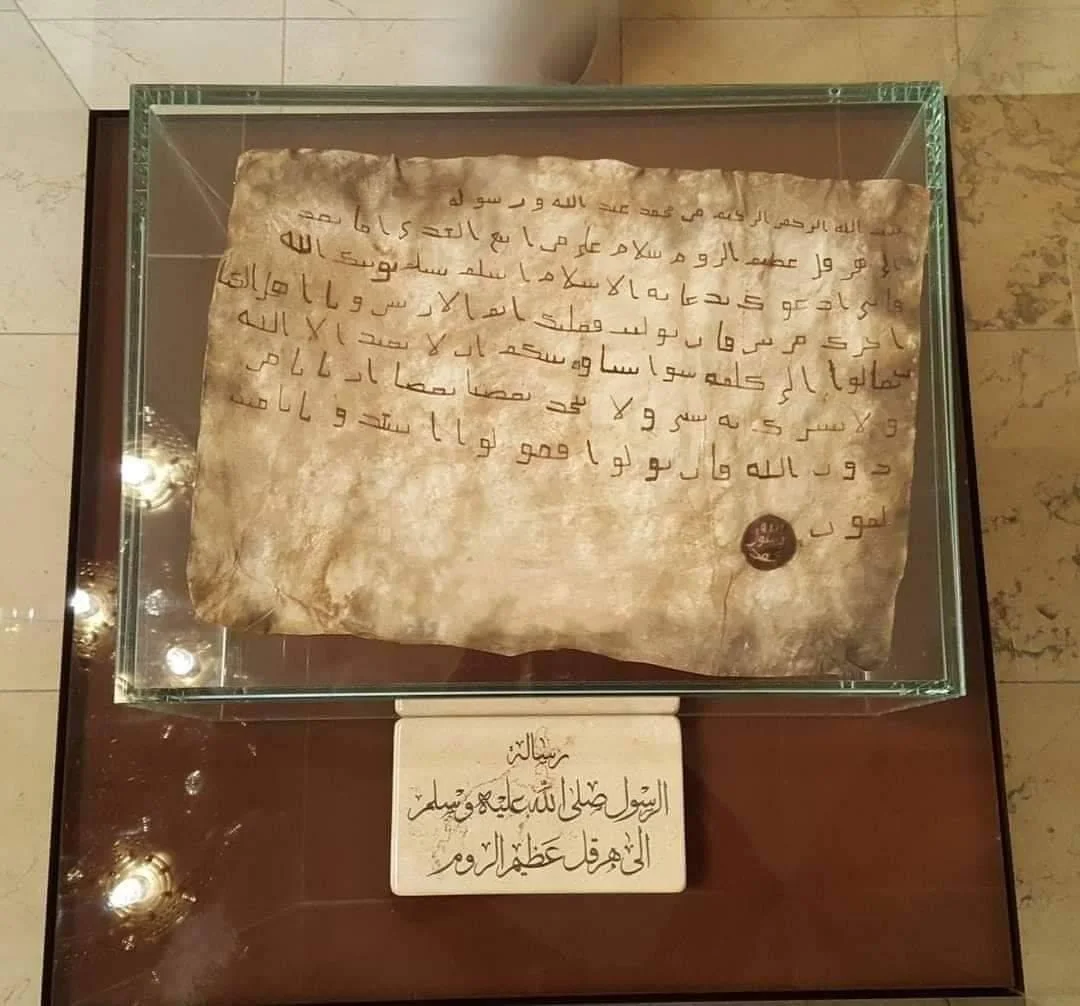 بسم الله الرحمن الرحيم من محمد عبد الله ورسوله
الى هرقل عظيم الروم سلام على من اتبع الهدى اما بعد
فانى ادعوك بدعاية الاسلام اسلم تسلم يوتك الله
اجرك مرتين فان توليت فعليك اثم الاريسين ويا اهل الكتا
ب تعالوا الى كلمة سوا بيننا وبينكم ان لا نعبد الا الله
ولا نشرك به شى ولا يتخذ بعضنا بعضا اربابا من
دون الله فان تولوا فقولوا اشهدوا بانا مس
لمون
الله
رسول
محمد
رسالة
الرسول صلى الله عليه وسلم
الى هرقل عظيم الروم